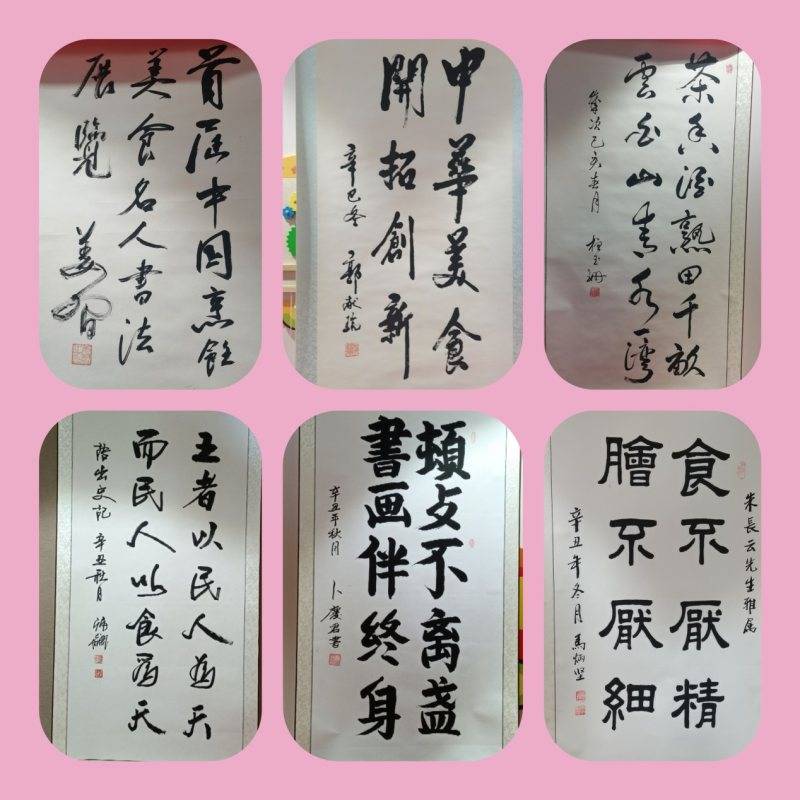 首屆中国烹飪
美食名人書法
展覽 姜
中華美食
開拓創新
辛巳冬 郭献瑞
茶香酒熟田千畝
雲白山青水一灣
歲次己亥春月
王者以民人為天
而民人以食為天
語出史記 辛丑秋月
頓歺不离盏
書画伴終身
辛丑年秋月 卜慶君書
朱長云先生雅属
食不厭精
膾不厭細
辛丑年冬月 馬炳坚